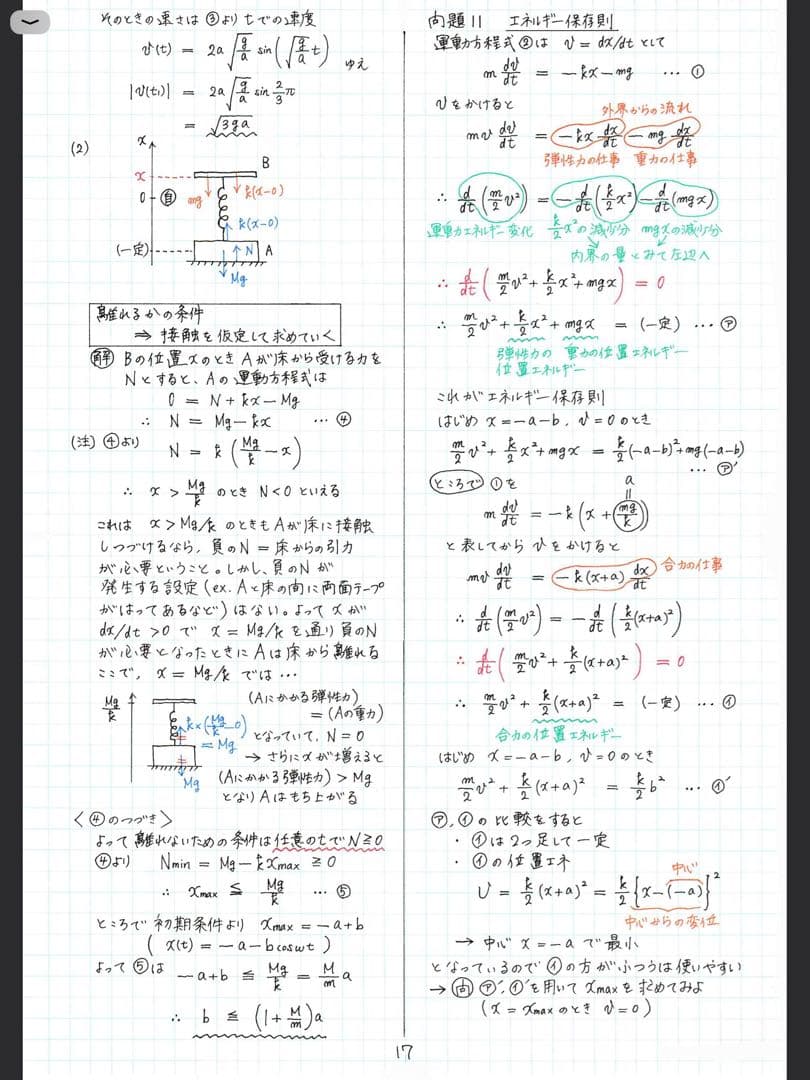 そのときの速さは ③より tでの速度
v(t) = 2a√(g/a) sin(√(g/a) t) ゆえ
|v(t₁)| = 2a√(g/a) sin 2/3 π
= √3ga
(2)
x
B
x
0
自
mg
k(x-0)
k(x-0)
(一定)
N
A
Mg
離れるかの条件
⇒ 接触を仮定して求めていく
解 Bの位置 x のとき A が床から受ける力を
N とすると、A の運動方程式は
0 = N + kx - Mg
∴ N = Mg - kx … ④
(注) ④より N = k(Mg/k - x)
∴ x > Mg/k のとき N<0 といえる
これは x > Mg/k のときも A が床に接触
しつづけるなら, 負の N = 床からの引力
が必要ということ。しかし, 負の N が
発生する設定 (ex. Aと床の間に両面テープ
がはってあるなど) はない。よって x が
dx/dt >0 で x = Mg/k を通り負の N
が必要となったときに A は床から離れる
ここで, x = Mg/k では…
Mg/k
k×(Mg/k - 0)
= Mg
Mg
(Aにかかる弾性力)
= (Aの重力)
となっていて, N = 0
→ さらに x が増えると
(Aにかかる弾性力) > Mg
となり A はもち上がる
〈④のつづき〉
よって離れないための条件は任意の t で N≧0
④より Nmin = Mg - kxmax ≧ 0
∴ xmax ≦ Mg/k … ⑤
ところで初期条件より xmax = -a+b
( x(t) = -a - b cos ωt )
よって⑤は -a+b ≦ Mg/k = M/m a
∴ b ≦ (1 + M/m)a
問題11 エネルギー保存則
運動方程式②は v = dx/dt として
m dv/dt = -kx - mg … ①
v をかけると
外界からの流れ
mv dv/dt = -kx dx/dt - mg dx/dt
弾性力の仕事 重力の仕事
∴ d/dt (m/2 v²) = -d/dt (k/2 x²) - d/dt (mgx)
運動エネルギー変化 k/2 x² の減少分 mgx の減少分
内界の量とみて左辺へ
∴ d/dt ( m/2 v² + k/2 x² + mgx ) = 0
∴ m/2 v² + k/2 x² + mgx = (一定) … ㋐
弾性力の 重力の位置エネルギー
位置エネルギー
これがエネルギー保存則
はじめ x = -a-b, v = 0 のとき
m/2 v² + k/2 x² + mgx = k/2 (-a-b)² + mg(-a-b)
… ㋐'
ところで ①を
a
॥
m dv/dt = -k (x + mg/k)
と表してから v をかけると
mv dv/dt = -k(x+a) dx/dt 合力の仕事
∴ d/dt (m/2 v²) = -d/dt (k/2 (x+a)²)
∴ d/dt ( m/2 v² + k/2 (x+a)² ) = 0
∴ m/2 v² + k/2 (x+a)² = (一定) … ㋑
合力の位置エネルギー
はじめ x = -a-b, v = 0 のとき
m/2 v² + k/2 (x+a)² = k/2 b² … ㋑'
㋐, ㋑ の比較をすると
・ ㋑は2つ足して一定
・ ㋑の位置エネ
中心
U = k/2 (x+a)² = k/2 {x - (-a)}²
中心からの変位
→ 中心 x = -a で最小
となっているので ㋑ の方がふつうは使いやすい
→ 問 ㋐', ㋑' を用いて xmax を求めてみよ
( x = xmax のとき v = 0 )
17